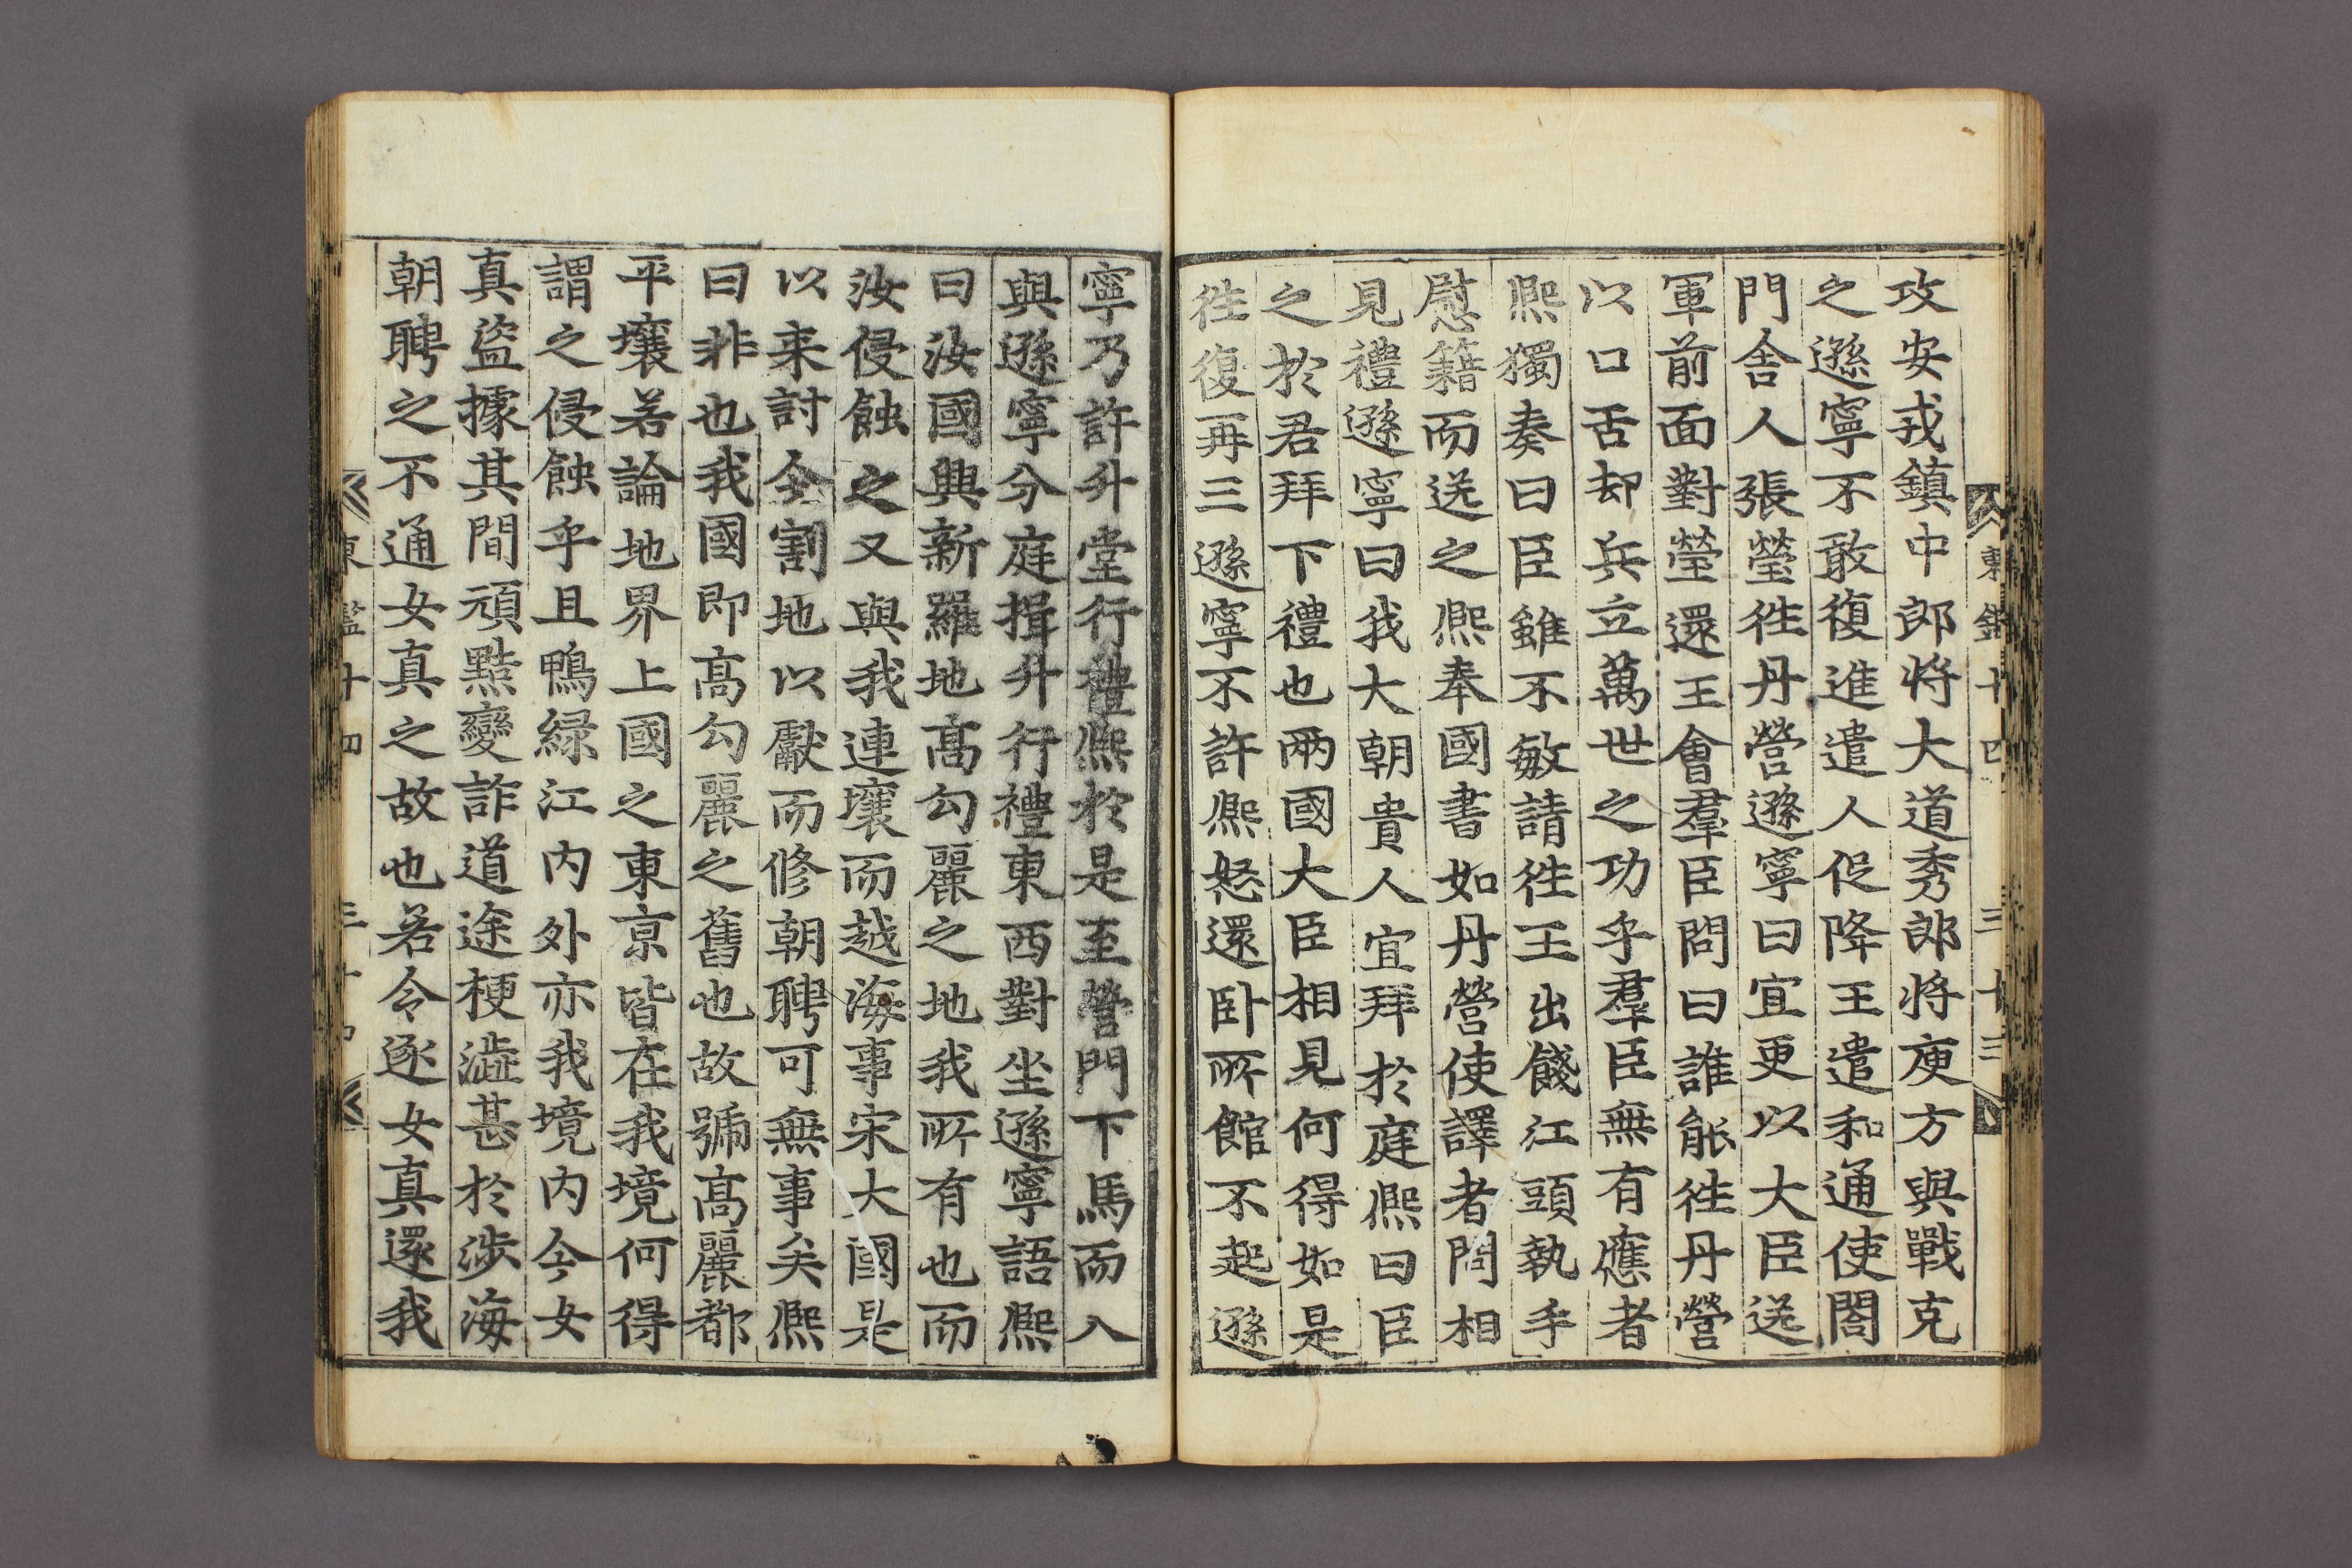 攻安戎鎭中郎將大道秀郎將庾方與戰克
之遜寧不敢復進遣人促降王遣和通使閤
門舍人張瑩徃丹營遜寧曰宜更以大臣送
軍前面對瑩還王會羣臣問曰誰能徃丹營
以口舌却兵立萬世之功乎羣臣無有應者
熈獨奏曰臣雖不敏請徃王出餞江頭執手
慰籍而送之熈奉國書如丹營使譯者問相
見禮遜寧曰我大朝貴人宜拜於庭熈曰臣
之於君拜下禮也兩國大臣相見何得如是
徃復再三遜寧不許熈怒還卧所館不起遜
寧乃許升堂行禮熈於是至營門下馬而入
與遜寧分庭揖升行禮東西對坐遜寧語熈
曰汝國興新羅地高勾麗之地我所有也而
汝侵蝕之又與我連壤而越海事宋大國是
以来討今割地以獻而修朝聘可無事矣熈
曰非也我國即高勾麗之舊也故號高麗都
平壤若論地界上國之東京皆在我境何得
謂之侵蝕乎且鴨綠江内外亦我境内今女
真盜據其間頑黠變詐道途梗澁甚於涉海
朝聘之不通女真之故也若令逐女真還我
東鑑十四